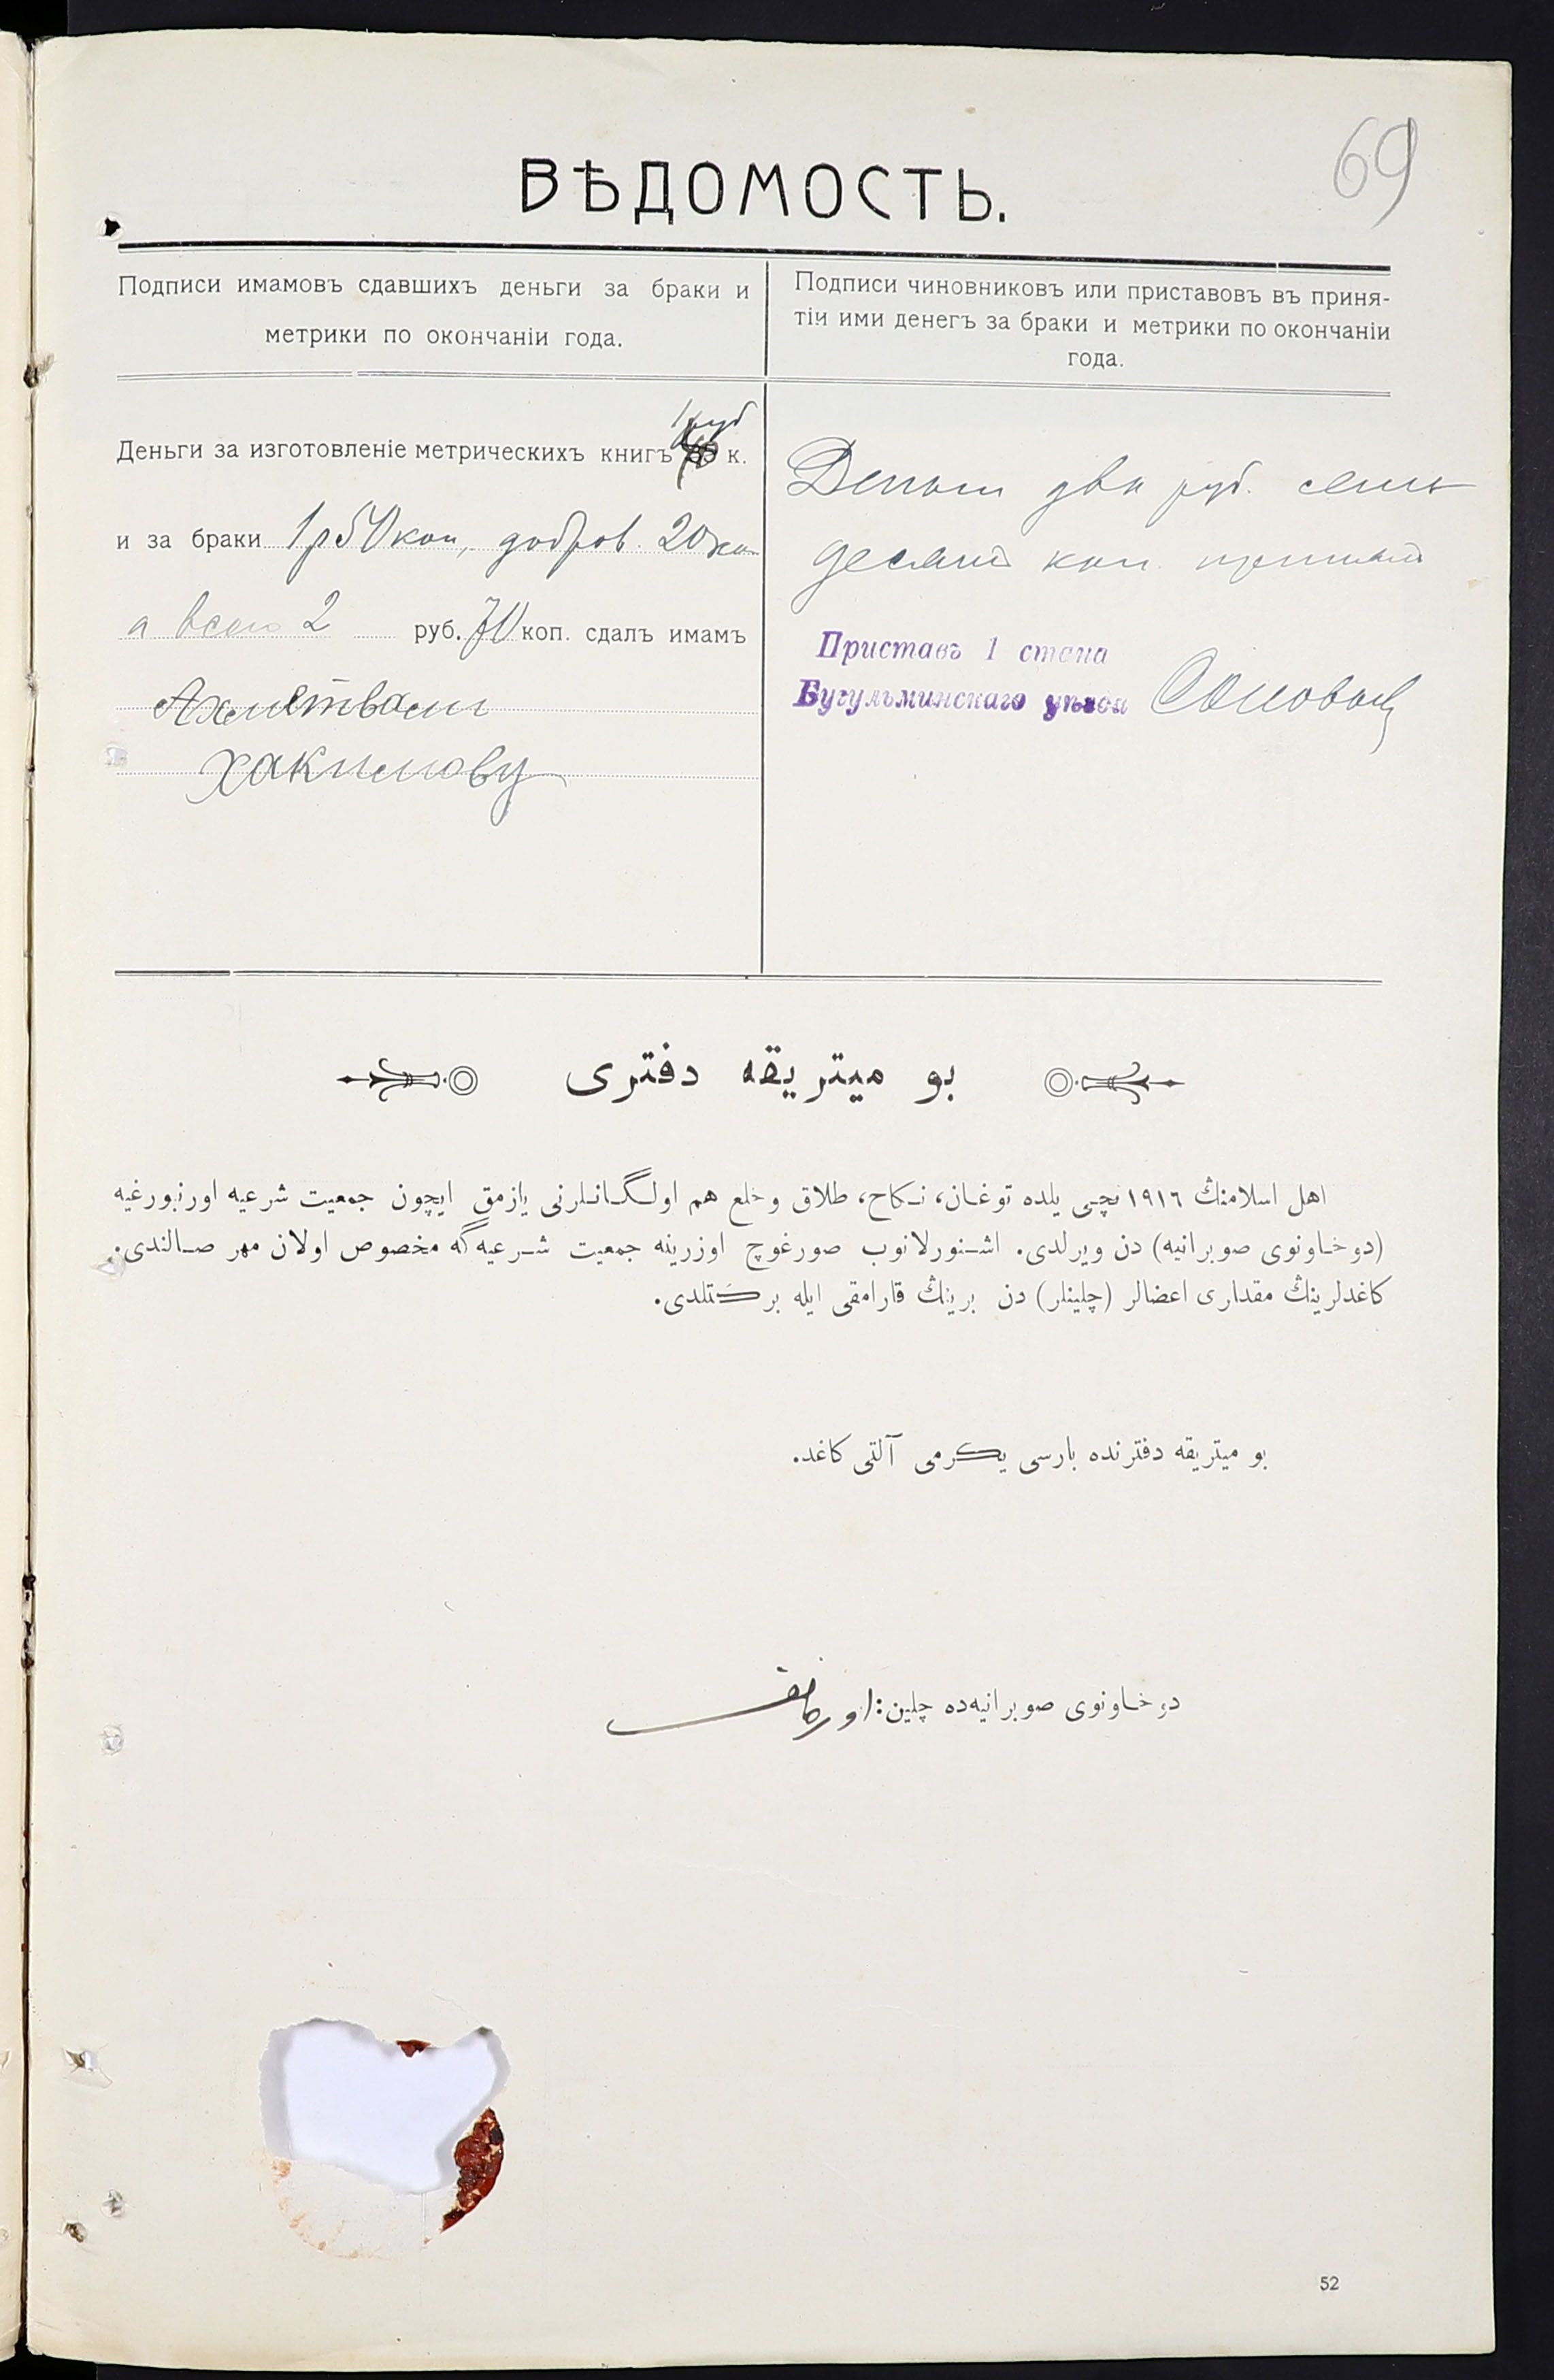 69
ВѢДОМОСТЬ.
Подписи имамовъ сдавшихъ деньги за браки и
метрики по окончаніи года.
Подписи чиновниковъ или приставовъ въ приня-
тіи ими денегъ за браки и метрики по окончаніи
года.
1 руб
Деньги за изготовленіе метрическихъ книгъ к.
и за браки 1 р 50 коп, добров. 20 ко
а всего 2 руб. 70 коп. сдалъ имамъ
Ахметвали
Хакимову
Деньги два руб. семь
десятъ коп. принялъ
Приставъ 1 стана
Бугульминскаго уѣзда
بو میتریقه دفتری
اهل اسلامنڭ ١٩١٦ نچی یلده توغان، نکاح، طلاق و خلع هم اولگانلرنی یازمق ایچون جمعیت شرعیه اورنبورغیه
(دوخاونوی صوبرانیه) دن ویرلدی. اشنورلانوب صورغوچ اوزرینه جمعیت شرعیه‌گه مخصوص اولان مهر صالندی.
کاغدلرینڭ مقداری اعضالر (چلینلر) دن برینڭ قارامقی ایله برکتلدی.
بو میتریقه دفترنده بارسی یکرمی آلتی کاغد.
دوخاونوی صوبرانیه‌ده چلین:
52